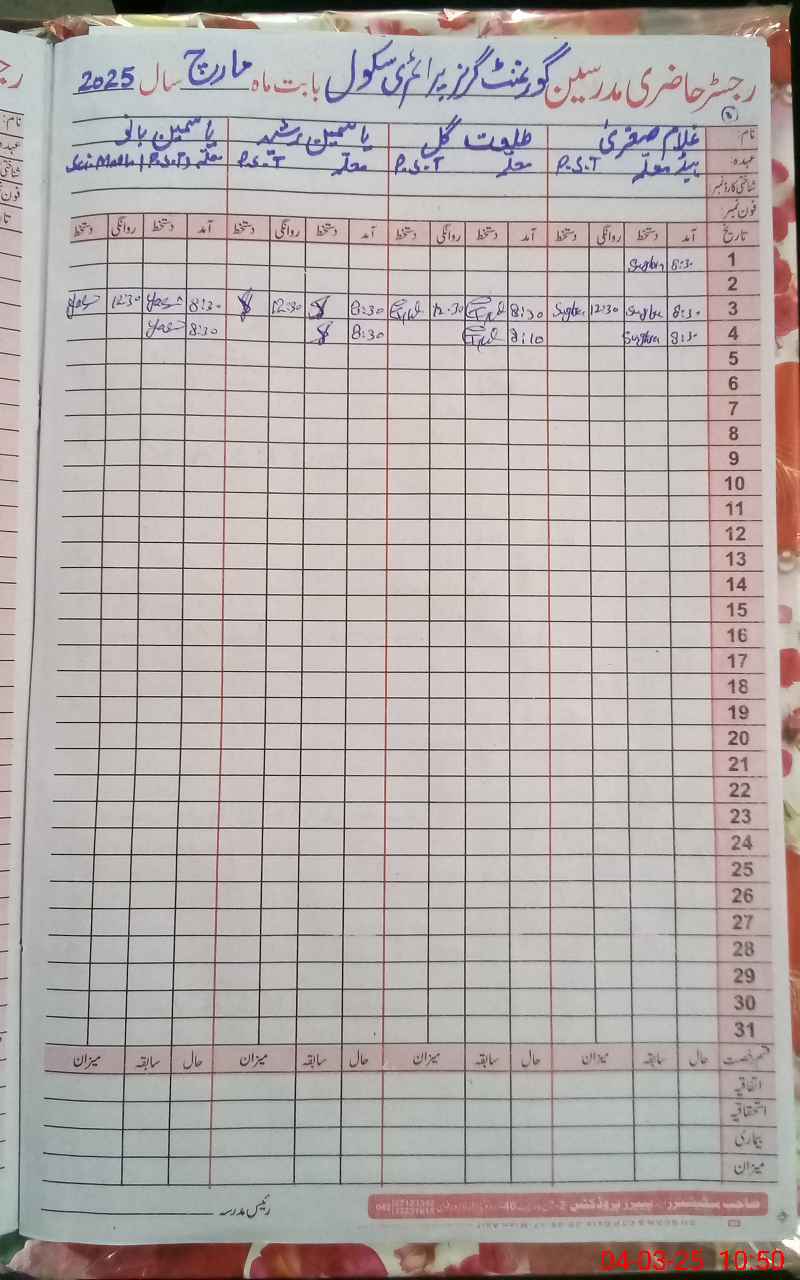 رجسٹر حاضری مدرسین گورنمنٹ گرلز پرائمری سکول بابت ماہ مارچ سال 2025
نام: غلام صغریٰ طلعت گل یاسمین رشید یاسمین بانو
عہدہ: ہیڈ معلمہ P.S.T معلمہ P.S.T معلمہ P.S.T معلمہ P.S.T
شناختی کارڈ نمبر:
فون نمبر:
تاریخ آمد دستخط روانگی دستخط آمد دستخط روانگی دستخط آمد دستخط روانگی دستخط آمد دستخط روانگی دستخط
1 8:30 Sughra
2
3 8:30 Sughra 12:30 Sughra 8:30 12:30 8:30 12:30 8:30 Yas 12:30 Yas
4 8:30 Sughra 8:10 8:30 8:30 Yas
5
6
7
8
9
10
11
12
13
14
15
16
17
18
19
20
21
22
23
24
25
26
27
28
29
30
31
قسم رخصت حال سابقہ میزان حال سابقہ میزان حال سابقہ میزان حال سابقہ میزان
اتفاقیہ
استحقاقیہ
بیماری
میزان
رئیس مدرسہ
04-03-25 10:50